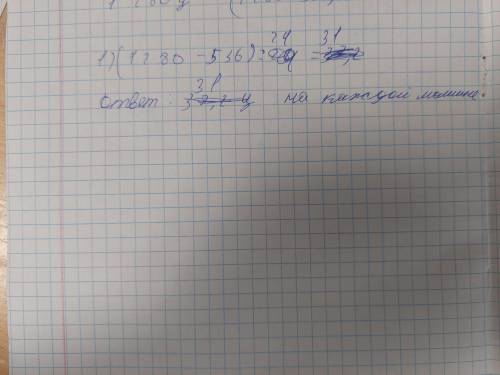 1)(1280 - 536):24 = 31
ответ: 31 ц на каждой машине.